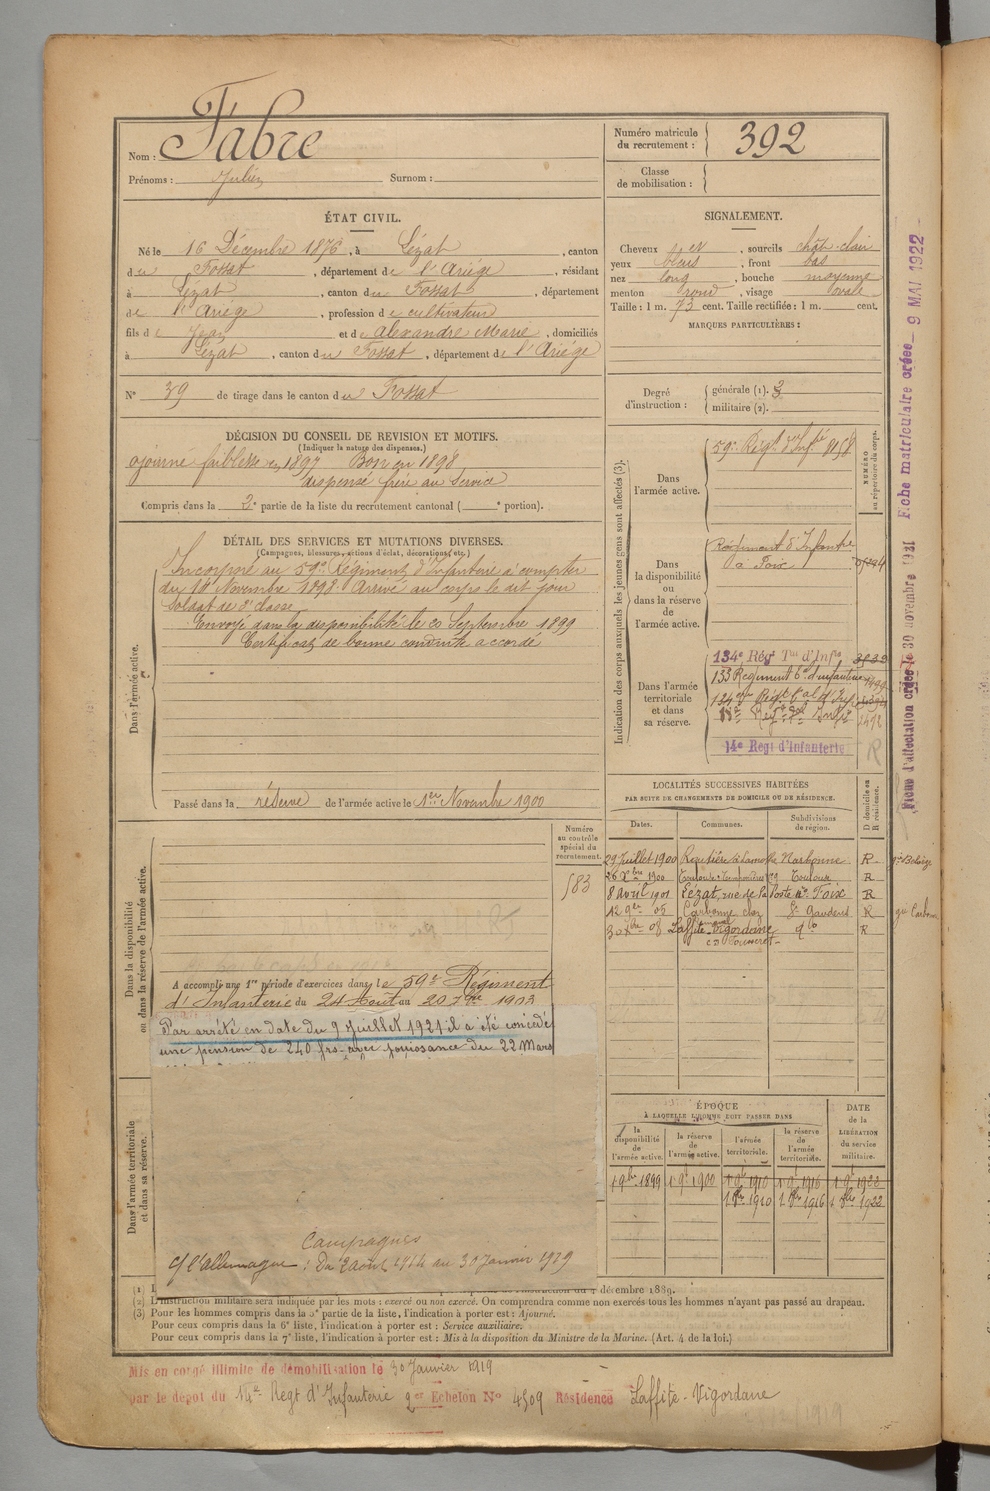 Nom : Fabre
Prénoms : Julien Surnom :
Numéro matricule du recrutement : 392
Classe de mobilisation :
ÉTAT CIVIL.
Né le 16 Décembre 1876, à Lézat, canton
du Fossat, département de l'Ariége, résidant
à Lézat, canton du Fossat, département
de l'Ariége, profession de cultivateur
fils de Jean et de Alexandre Marie, domiciliés
à Lézat, canton du Fossat, département de l'Ariége
N° 39 de tirage dans le canton du Fossat
SIGNALEMENT.
Cheveux, sourcils chât-clair
yeux bleus, front bas
nez long, bouche moyenne
menton rond, visage ovale
Taille : 1 m. 73 cent. Taille rectifiée : 1 m. cent.
MARQUES PARTICULIÈRES :
Degré d'instruction : générale (1). 3
militaire (2).
DÉCISION DU CONSEIL DE REVISION ET MOTIFS.
(Indiquer la nature des dispenses.)
ajourné faiblesse en 1897 Bon en 1898
dispensé frère au Service
Compris dans la 2e partie de la liste du recrutement cantonal ( e portion).
DÉTAIL DES SERVICES ET MUTATIONS DIVERSES.
(Campagnes, blessures, actions d'éclat, décorations, etc.)
Dans l'armée active.
Incorporé au 59e Régiment d'Infanterie à compter
du 14 Novembre 1898 Arrivé au corps le dit jour
Soldat de 2e classe
Envoyé dans la disponibilité le 20 Septembre 1899
Certificat de bonne conduite accordé
Passé dans la réserve de l'armée active le 1er Novembre 1900
Indication des corps auxquels les jeunes gens sont affectés (3).
NUMÉRO au répertoire du corps.
Dans l'armée active. 59e Régt d'Infie 8158
Dans la disponibilité ou dans la réserve de l'armée active. Régiment d'Infantrie
à Foix
Dans l'armée territoriale et dans sa réserve. 134e Régt Tal d'Infie
133 Régiment tal d'infanterie
14e Regt d'Infanterie
R
LOCALITÉS SUCCESSIVES HABITÉES
PAR SUITE DE CHANGEMENTS DE DOMICILE OU DE RÉSIDENCE.
Dates. Communes. Subdivisions de région. D domicile ou R résidence.
29 Juillet 1900 Narbonne R
1900 Toulouse R
8 Avril 1901 Lézat, rue de la Poste Foix R
12 9bre 05 Carbonne chez St Gaudens R
30 Xbre 08 Laffite-Vigordane do R
Dans la disponibilité ou dans la réserve de l'armée active.
Numéro au contrôle spécial du recrutement.
583
A accompli une 1re période d'exercices dans le 59e Régiment
d'Infanterie du 24 Août au 20 7bre 1903
Par arrêté en date du 9 Juillet 1921 il a été concédé
une pension de 240 frs avec jouissance du 22 Mars
Dans l'armée territoriale et dans sa réserve.
Campagnes
c/ l'allemagne : Du 2 août 1914 au 30 Janvier 1919
ÉPOQUE
À LAQUELLE L'HOMME DOIT PASSER DANS
la disponibilité de l'armée active.
la réserve de l'armée active.
l'armée territoriale.
la réserve de l'armée territoriale.
DATE de la LIBÉRATION du service militaire.
1 9bre 1899 1 9bre 1900 1 9bre 1910 1 9bre 1916 1 9bre 1922
1 8bre 1910 1 8bre 1916 1 8bre 1922
décembre 1889.
(2) L'instruction militaire sera indiquée par les mots : exercé ou non exercé. On comprendra comme non exercés tous les hommes n'ayant pas passé au drapeau.
(3) Pour les hommes compris dans la 5e partie de la liste, l'indication à porter est : Ajourné.
Pour ceux compris dans la 6e liste, l'indication à porter est : Service auxiliaire.
Pour ceux compris dans la 7e liste, l'indication à porter est : Mis à la disposition du Ministre de la Marine. (Art. 4 de la loi.)
Mis en congé illimité de démobilisation le 30 Janvier 1919
par le dépôt du 14e Regt d'Infanterie 2er Echelon N° 4509 Résidence Laffite-Vigordane
Fiche d'affectation créée le 30 novembre 1921 Fiche matriculaire créée 9 MAI 1922